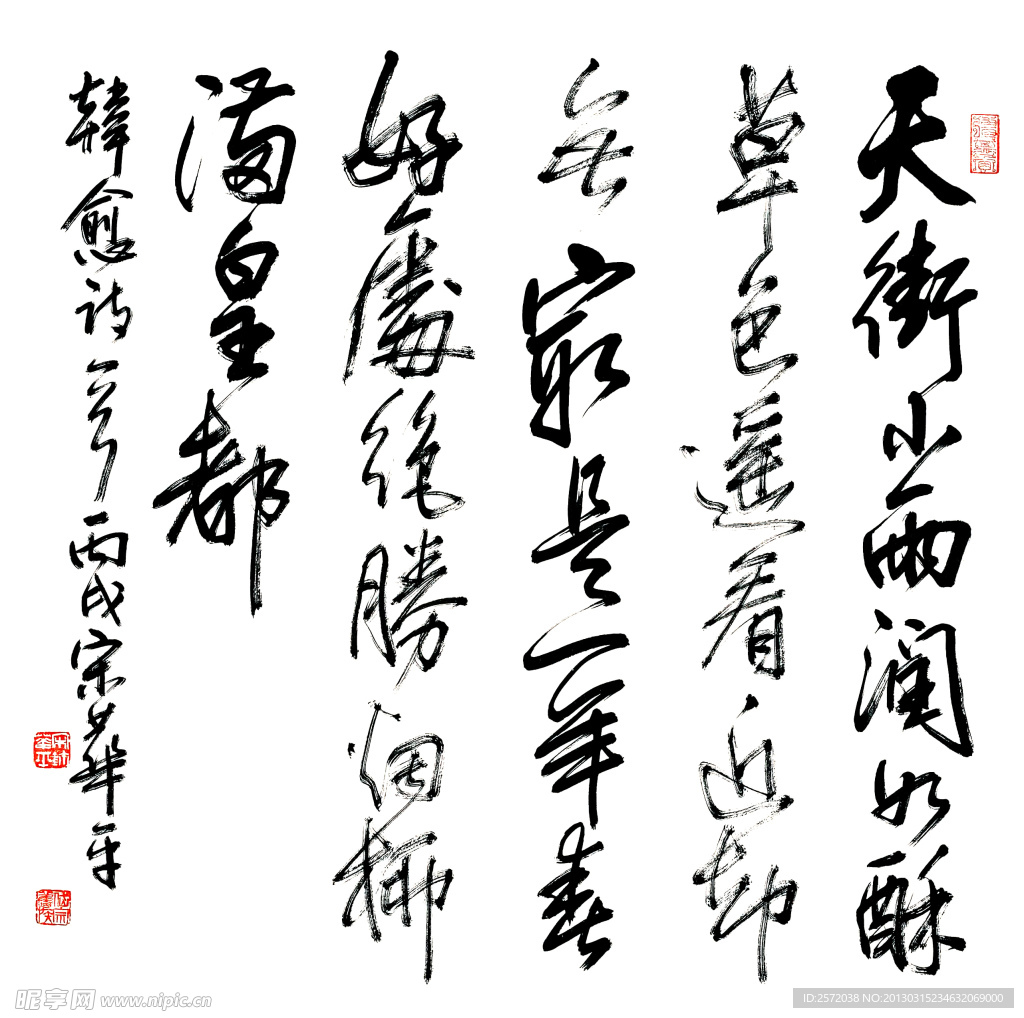 天街小雨润如酥
草色遥看近却
無最是一年春
好處绝勝烟柳
满皇都
韓愈诗一首丙戌宋華平
昵享网 www.nipic.cn
ID:2572038 NO:20130315234632069000